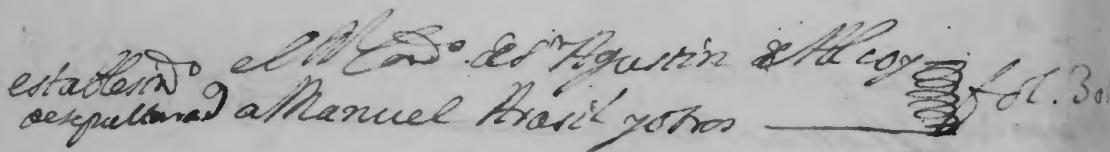 establesim.to el R. Conv.to de S. Agustin de Alcoy
de sepulturas a Manuel Brasil y otros fol. 30